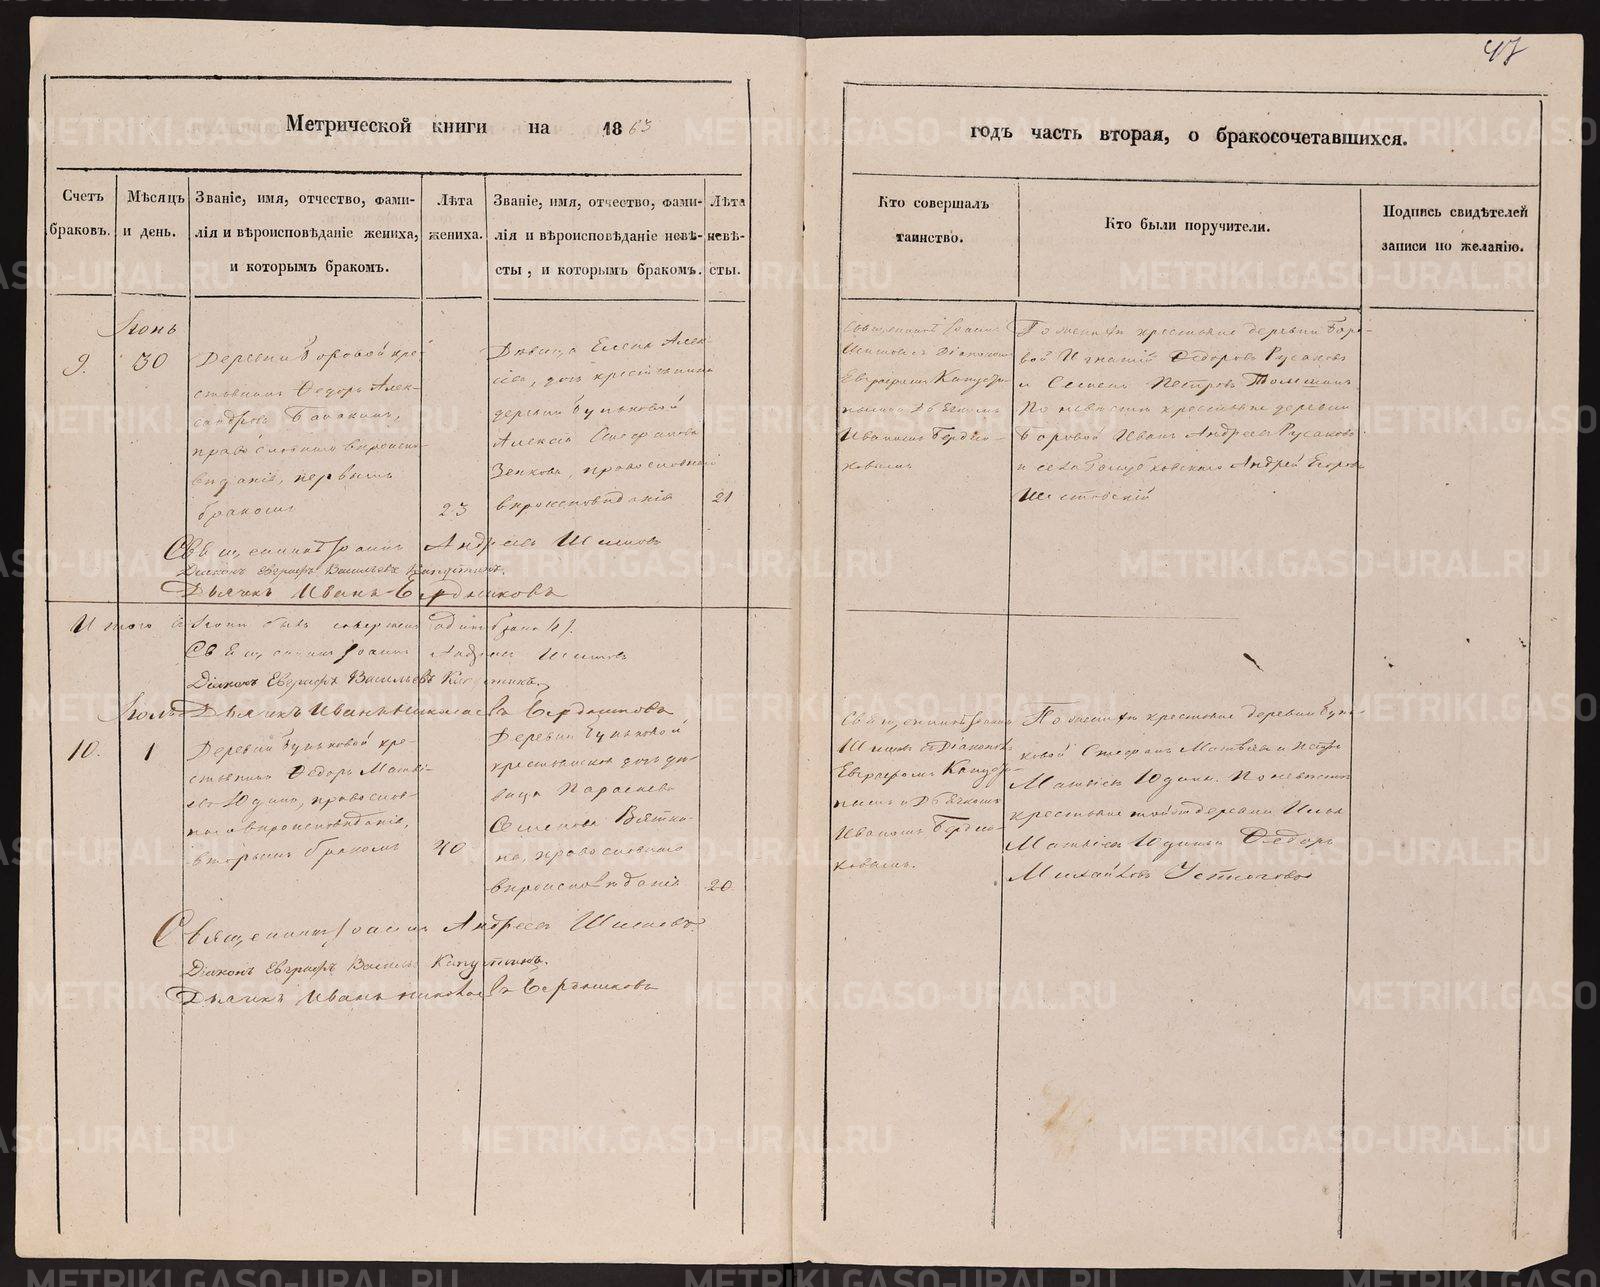 47
Метрической книги на 1863
годъ часть вторая, о бракосочетавшихся.
Счетъ браковъ.
Мѣсяцъ и день.
Званіе, имя, отчество, фами-
лія и вѣроисповѣданіе жениха,
и которымъ бракомъ.
Лѣта
жениха.
Званіе, имя, отчество, фами-
лія и вѣроисповѣданіе невѣ-
сты, и которымъ бракомъ.
Лѣта
невѣ-
сты.
Кто совершалъ
таинство.
Кто были поручители.
Подпись свидѣтелей
записи по желанію.
Іюнь
9.
30
Деревни Боровой кре-
стьянинъ Ѳедоръ Алек-
сандровъ
православнаго вѣроиспо-
вѣданія, первымъ
бракомъ
23
Дѣвица Елена Алек-
сіева, дочь крестьянина
деревни Буньковой
Алексія Стефанова
Зенкова, православнаго
вѣроисповѣданія
21
Священникъ Іоаннъ
Шишовъ съ Діакономъ
Евграфомъ Капусти-
нымъ и Дьячкомъ
Иваномъ Бердю-
ковымъ
По женихѣ крестьяне деревни Боро-
вой Игнатій Ѳедоровъ Русаковъ
и Семенъ Петровъ
По невѣстѣ крестьяне деревни
Боровой Иванъ Андреевъ Русаковъ
и села Андрей Егоровъ
Священникъ Іоаннъ Андреевъ Шишовъ
Діаконъ Евграфъ Васильевъ Капустинъ.
Дьячекъ Иванъ
Итого въ Іюнѣ былъ совершенъ одинъ бракъ /1/.
Священникъ Іоаннъ Андреевъ Шишовъ
Діаконъ Евграфъ Васильевъ Капустинъ.
Іюль Дьячекъ Иванъ Николаевъ
10.
1
Деревни Буньковой кре-
стьянинъ Ѳедоръ Матвѣ-
евъ Юдинъ, православ-
наго вѣроисповѣданія,
вторымъ бракомъ
40
Деревни Буньковой
крестьянская дочь дѣ-
вица Параскева
Семенова Вятки-
на, православнаго
вѣроисповѣданія
20
Священникъ Іоаннъ
Шишовъ съ Діакономъ
Евграфомъ Капусти-
нымъ и Дьячкомъ
Иваномъ Бердю-
ковымъ.
По женихѣ крестьяне деревни Бунь-
ковой Стефанъ Матвѣевъ и Петръ
Матвѣевъ Юдины. По невѣстѣ
крестьяне той же деревни Илья
Матвѣевъ Юдинъ и Ѳедоръ
Михайловъ Устюговъ
Священникъ Іоаннъ Андреевъ Шишовъ.
Діаконъ Евграфъ Васильевъ Капустинъ.
Дьячекъ Иванъ Николаевъ
METRIKI.GASO-URAL.RU